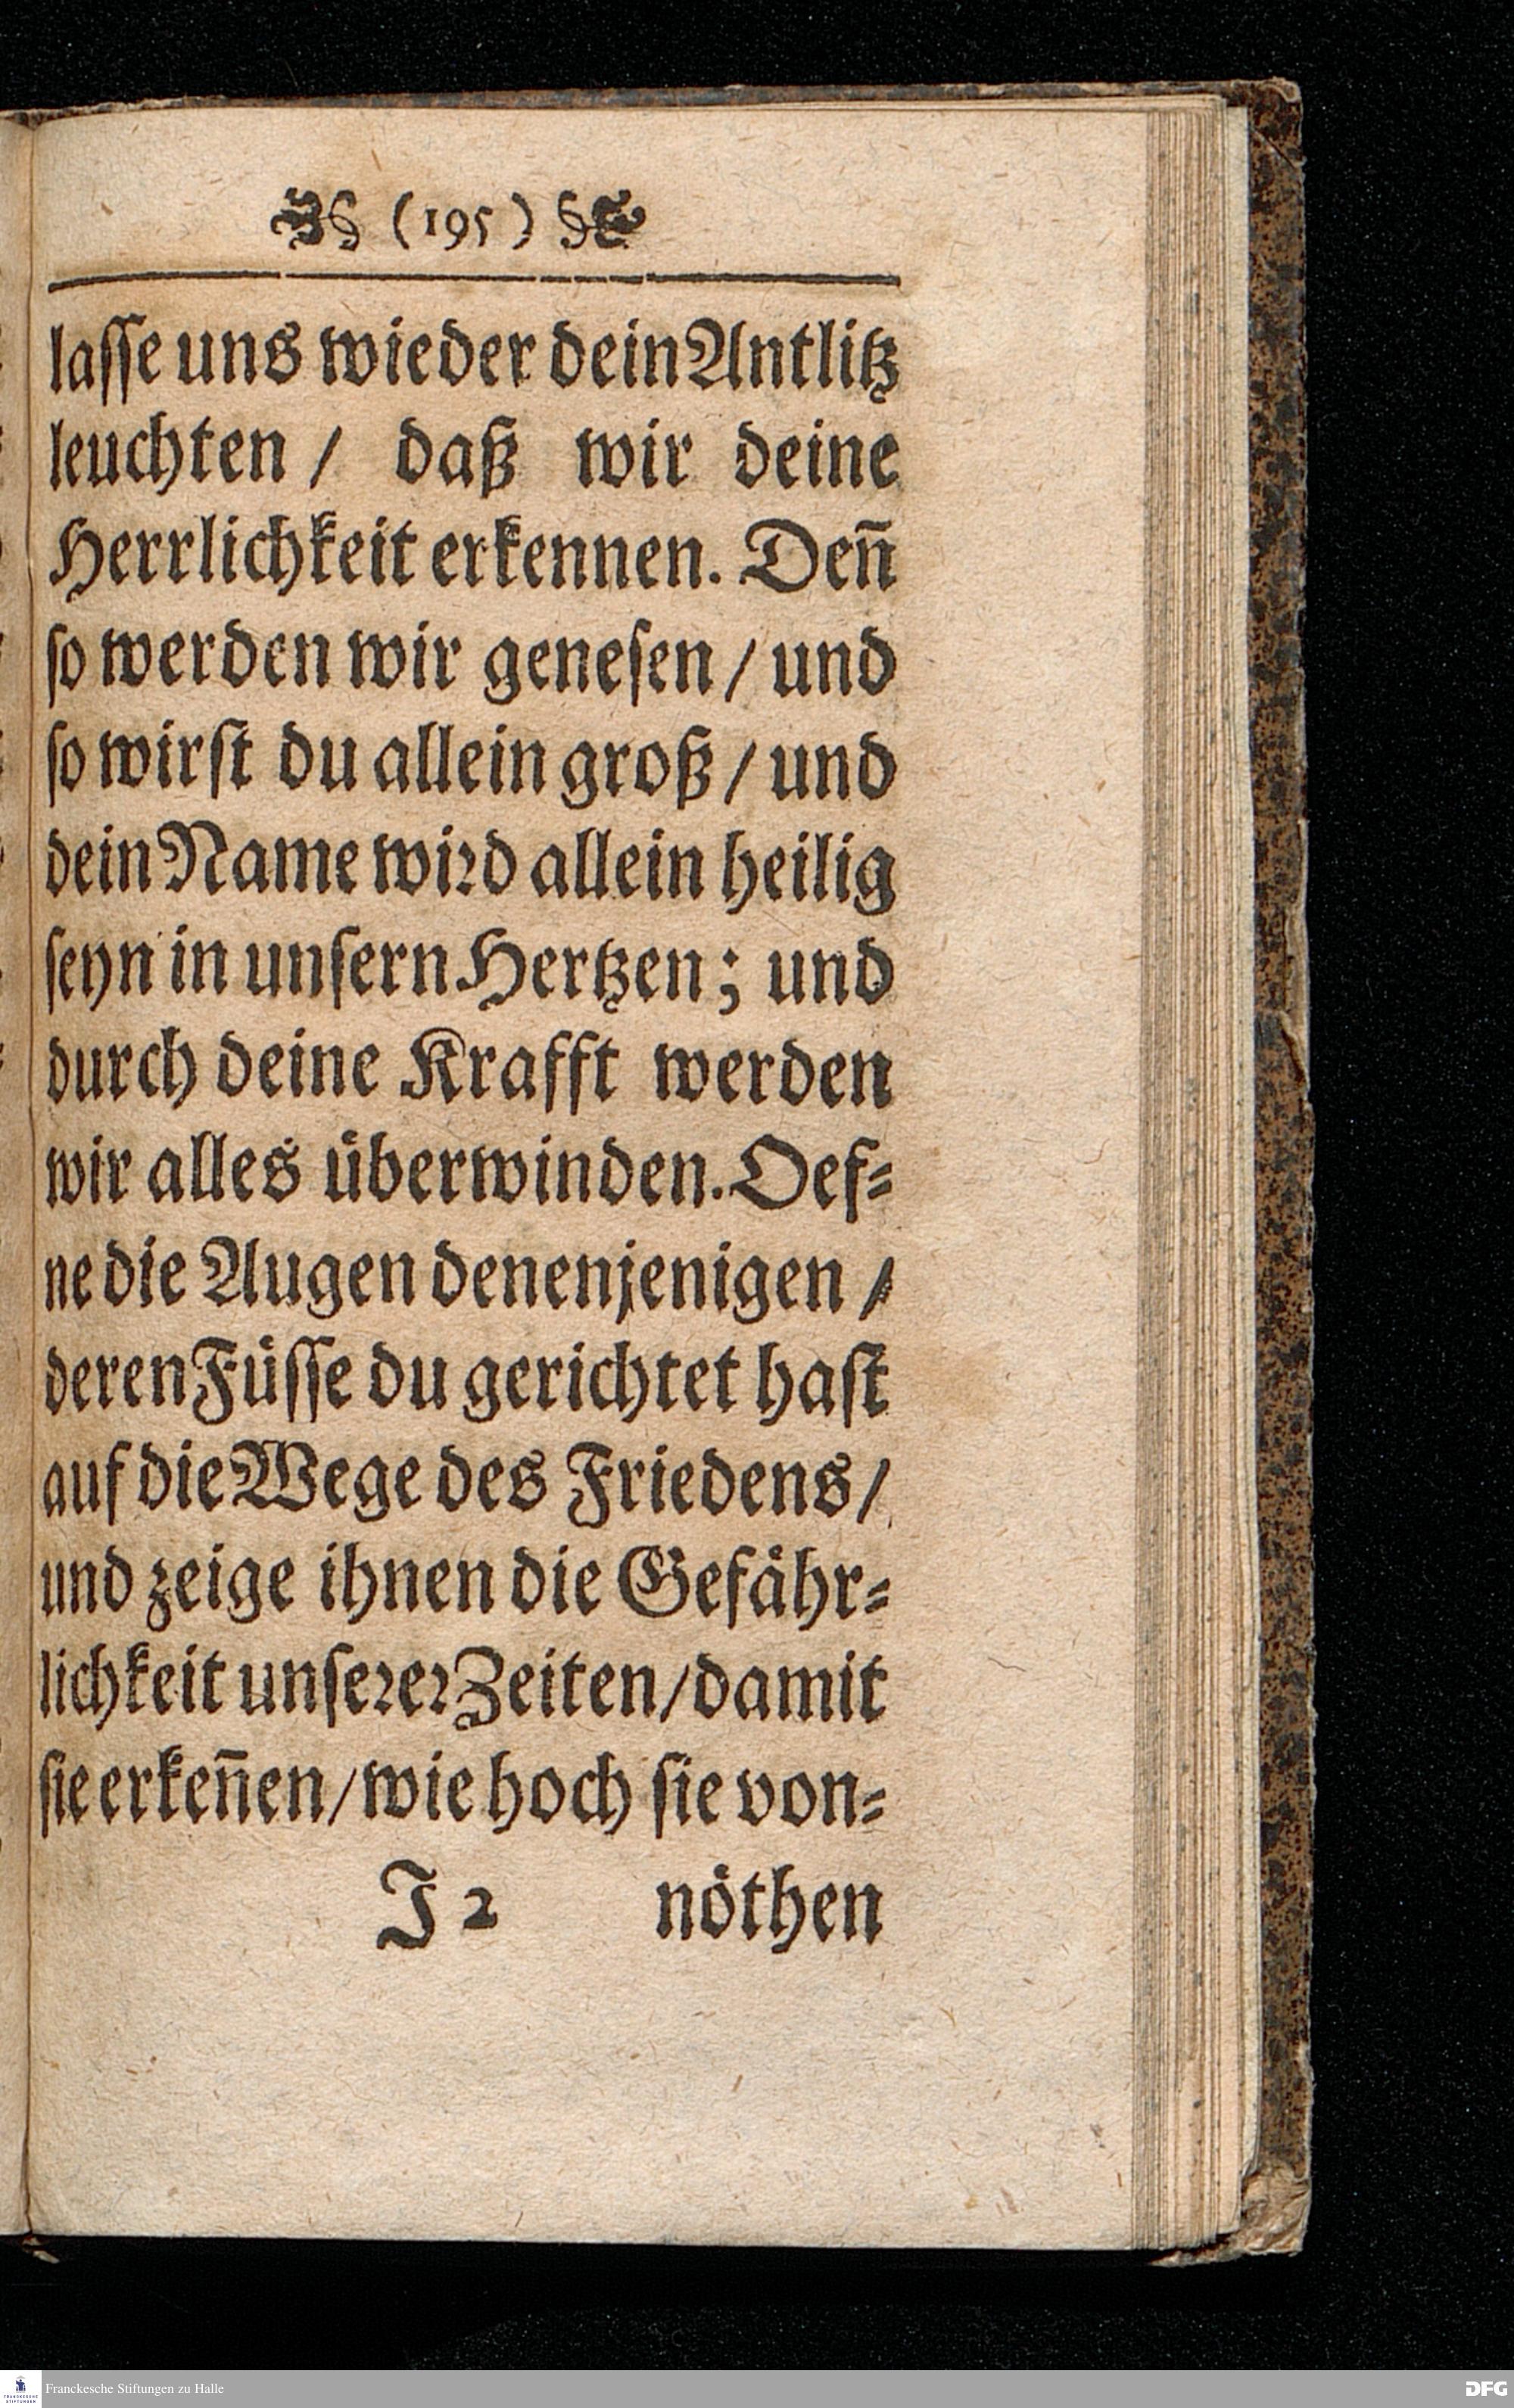 (195)
lasse uns wieder dein Antlitz
leuchten / daß wir deine
Herrlichkeit erkennen. Deñ
so werden wir genesen / und
so wirst du allein groß / und
dein Name wird allein heilig
seyn in unsern Hertzen; und
durch deine Krafft werden
wir alles überwinden. Oef-
ne die Augen denenjenigen /
deren Füsse du gerichtet hast
auf die Wege des Friedens /
und zeige ihnen die Gefähr-
lichkeit unserer Zeiten / damit
sie erkeñen / wie hoch sie von-
J 2 nöthen
FRANCKESCHE STIFTUNGEN
Franckesche Stiftungen zu Halle
DFG